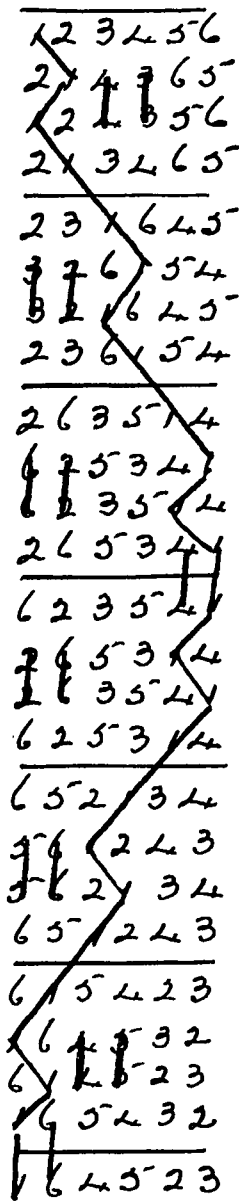 1 2 3 4 5 6
2 1 4 3 6 5
1 2 4 3 5 6
2 1 3 4 6 5
2 3 1 6 4 5
3 2 6 1 5 4
3 2 1 6 4 5
2 3 6 1 5 4
2 6 3 5 1 4
6 2 5 3 4 1
6 2 3 5 1 4
2 6 5 3 4 1
6 2 3 5 4 1
2 6 5 3 1 4
2 6 3 5 4 1
6 2 5 3 1 4
6 5 2 1 3 4
5 6 1 2 4 3
5 6 2 1 3 4
6 5 1 2 4 3
6 1 5 4 2 3
1 6 4 5 3 2
6 1 4 5 2 3
1 6 5 4 3 2
1 6 4 5 2 3